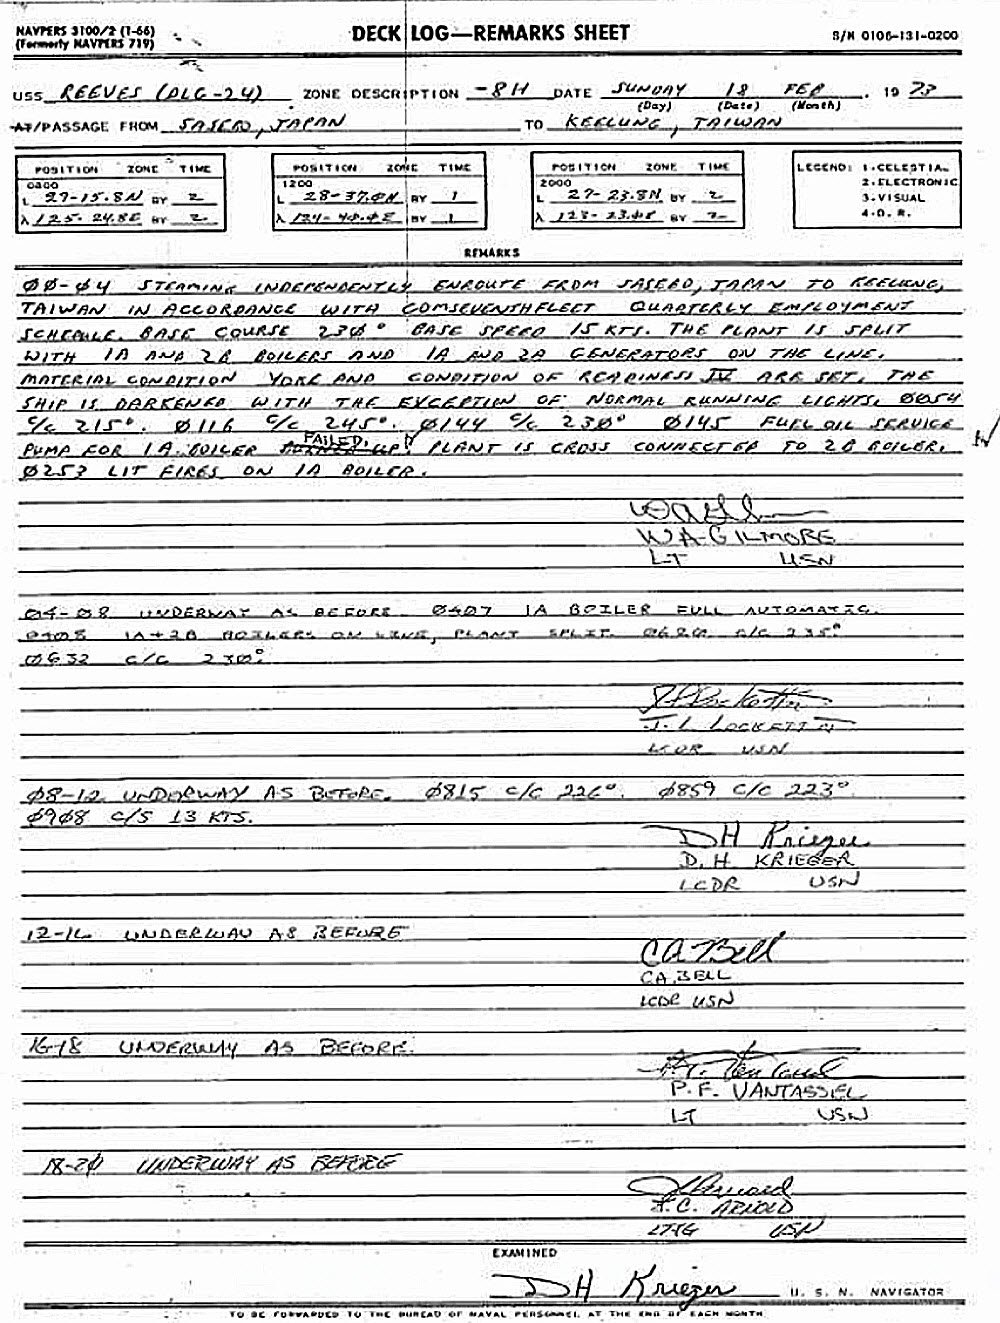 NAVPERS 3100/2 (1-66)
(Formerly NAVPERS 719)
DECK LOG—REMARKS SHEET
S/N 0106-131-0200
USS REEVES (DLG-24) ZONE DESCRIPTION -8H DATE SUNDAY 18 FEB, 19 73
(Day) (Date) (Month)
AT/PASSAGE FROM SASEBO, JAPAN TO KEELUNG, TAIWAN
POSITION ZONE TIME
0800
L 29-15.8N BY 2
λ 125-24.8E BY 2
POSITION ZONE TIME
1200
L 28-37.0N BY 1
λ 124-40.0E BY 1
POSITION ZONE TIME
2000
L 27-23.8N BY 2
λ 123-23.0E BY 2
LEGEND: 1-CELESTIAL
2-ELECTRONIC
3-VISUAL
4-D. R.
REMARKS
00-04 STEAMING INDEPENDENTLY ENROUTE FROM SASEBO, JAPAN TO KEELUNG,
TAIWAN IN ACCORDANCE WITH COMSEVENTHFLEET QUARTERLY EMPLOYMENT
SCHEDULE. BASE COURSE 230° BASE SPEED 15 KTS. THE PLANT IS SPLIT
WITH 1A AND 2B BOILERS AND 1A AND 2A GENERATORS ON THE LINE.
MATERIAL CONDITION YOKE AND CONDITION OF READINESS IV ARE SET. THE
SHIP IS DARKENED WITH THE EXCEPTION OF NORMAL RUNNING LIGHTS. 0054
C/C 215°. 0116 C/C 245°. 0144 C/C 230° 0145 FUEL OIL SERVICE
PUMP FOR 1A BOILER FAILED. PLANT IS CROSS CONNECTED TO 2B BOILER.
0253 LIT FIRES ON 1A BOILER.
W.A. GILMORE
LT USN
04-08 UNDERWAY AS BEFORE 0407 1A BOILER FULL AUTOMATIC.
0408 1A+2B BOILERS ON LINE, PLANT SPLIT. 0620 C/C 235°
0632 C/C 230°
J. L. LOCKETT III
LCDR USN
08-12 UNDERWAY AS BEFORE. 0815 C/C 226°. 0859 C/C 223°
0908 C/S 13 KTS.
DH Krieger
D. H. KRIEGER
LCDR USN
12-16 UNDERWAY AS BEFORE
CA Bell
C A. BELL
LCDR USN
16-18 UNDERWAY AS BEFORE.
P. F. VANTASSEL
LT USN
18-20 UNDERWAY AS BEFORE
C. ARNOLD
LTJG USN
EXAMINED
DH Krieger U. S. N. NAVIGATOR
TO BE FORWARDED TO THE BUREAU OF NAVAL PERSONNEL AT THE END OF EACH MONTH